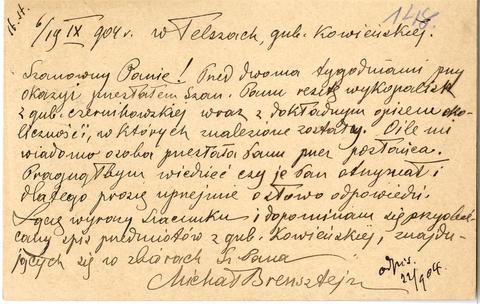 148.
6/19 IX 904 r. w Telszach, gub. Kowieńskiej.
Szanowny Panie! Pred dwoma tygodniami przy
okazyi przesłałem Szan. Panu resztę wykopalisk
z gub. czernihowskiej wraz z dokładnym opisem oko-
liczności, w których znalezione zostały. O ile mi
wiadomo osoba przesłała Panu przez posłańca.
Pragnąłbym wiedzieć czy je Pan otrzymał i
dlatego proszę uprzejmie o słowo odpowiedzi.
Łączę wyrazy szacunku i dopominam się przyobie-
cany spis przedmiotów z gub. Kowieńskiej, znajdu-
jących się w zbiorach Sz. Pana
Michał Brensztejn
odpis.
22/9 904.